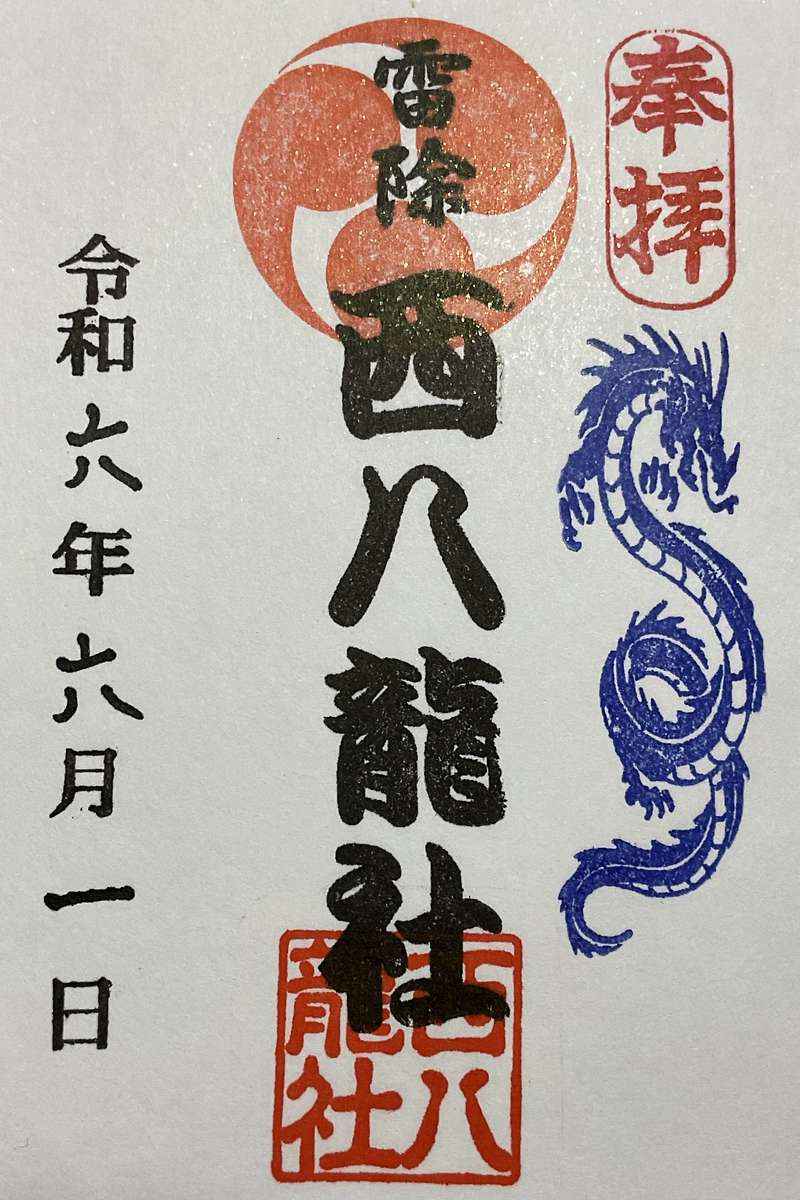 奉拝
雷除
西八龍社
西八龍社
令和六年六月一日